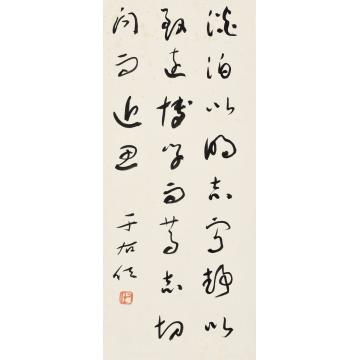 淡泊以明志寧靜以
致遠博学而篤志切
问而近思
于右任